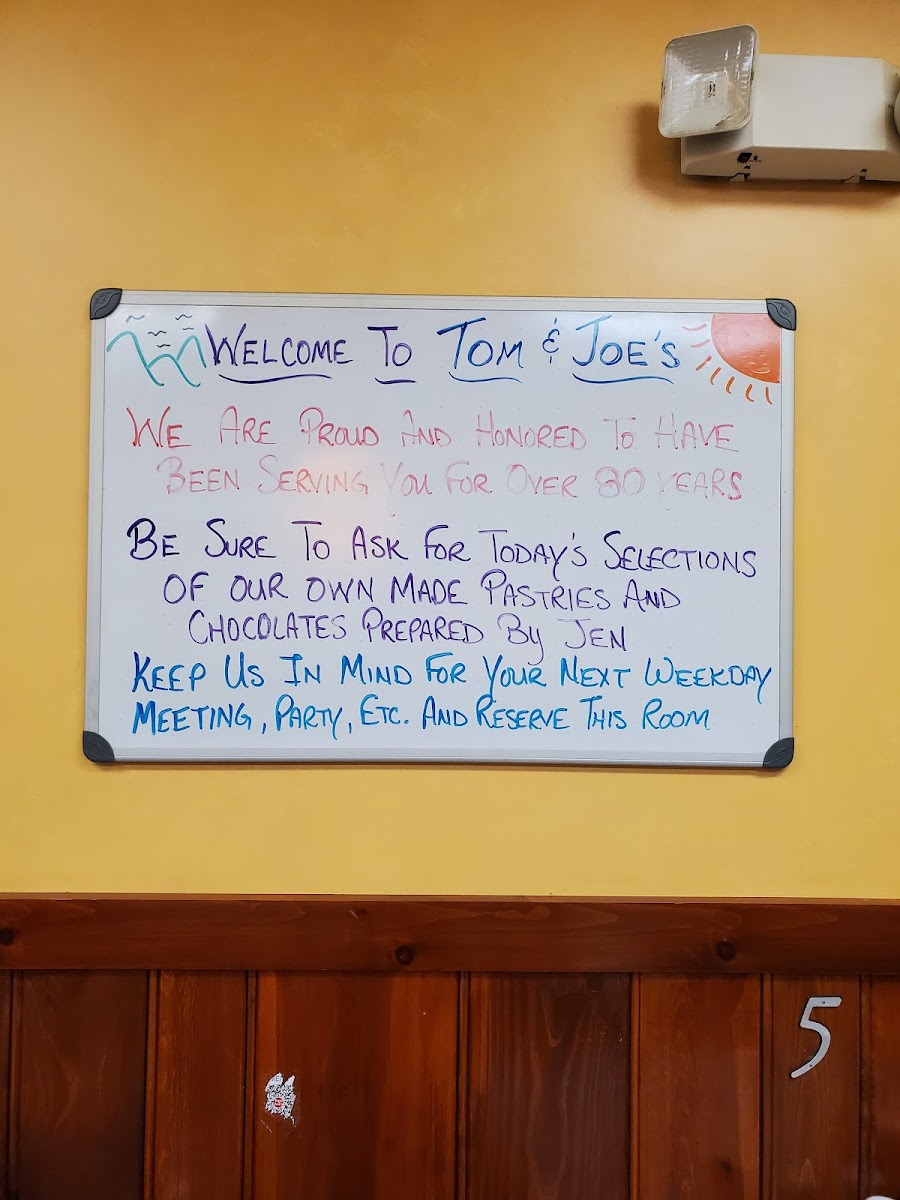 WELCOME TO TOM & JOE'S
WE ARE PROUD AND HONORED TO HAVE
BEEN SERVING YOU FOR OVER 80 YEARS
BE SURE TO ASK FOR TODAY'S SELECTIONS
OF OUR OWN MADE PASTRIES AND
CHOCOLATES PREPARED BY JEN
KEEP US IN MIND FOR YOUR NEXT WEEKDAY
MEETING, PARTY, ETC. AND RESERVE THIS ROOM
5